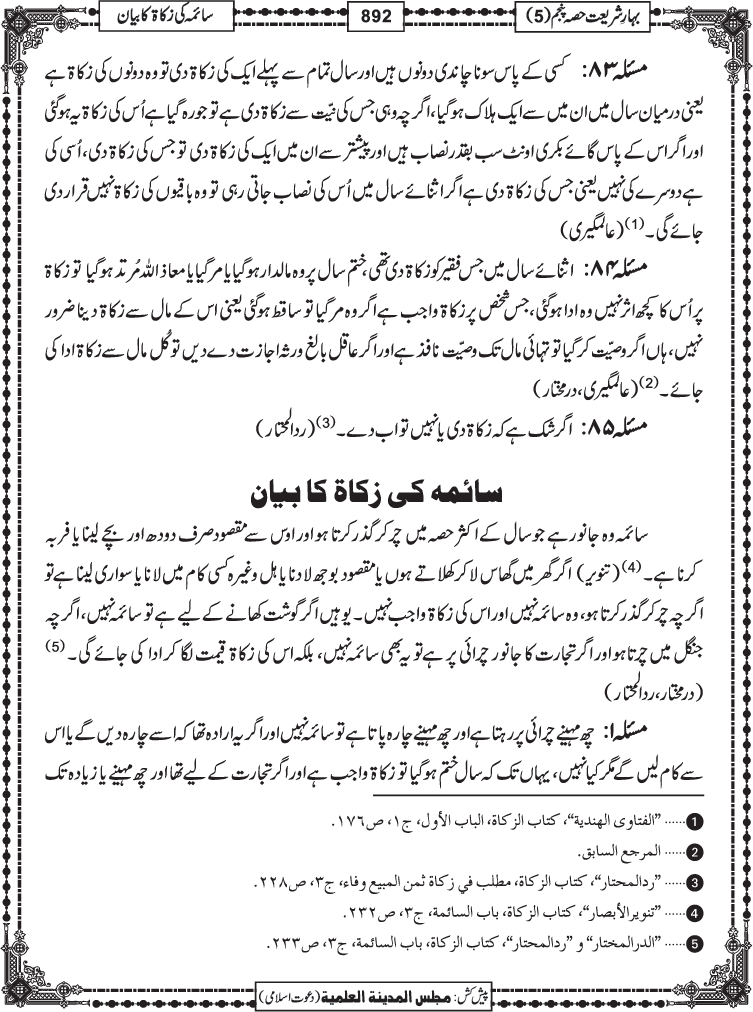 بہارِ شریعت حصہ پنجم (5)
892
سائمہ کی زکاۃ کا بیان
مسئلہ ۸۳: کسی کے پاس سونا چاندی دونوں ہیں اور سال تمام سے پہلے ایک کی زکاۃ دی تو وہ دونوں کی زکاۃ ہے
یعنی درمیان سال میں ان میں سے ایک ہلاک ہوگیا، اگرچہ وہی جس کی نیّت سے زکاۃ دی ہے تو جو رہ گیا ہے اُس کی زکاۃ یہ ہوگئی
اور اگر اس کے پاس گائے بکری اونٹ سب بقدر نصاب ہیں اور پیشتر سے ان میں ایک کی زکاۃ دی تو جس کی زکاۃ دی، اُسی کی
ہے دوسرے کی نہیں یعنی جس کی زکاۃ دی ہے اگر اثنائے سال میں اُس کی نصاب جاتی رہی تو وہ باقیوں کی زکاۃ نہیں قرار دی
جائے گی۔ (1) (عالمگیری)
مسئلہ ۸۴: اثنائے سال میں جس فقیر کو زکاۃ دی تھی، ختم سال پر وہ مالدار ہوگیا یا مرگیا یا معاذ اللہ مُرتد ہوگیا تو زکاۃ
پر اُس کا کچھ اثر نہیں وہ ادا ہوگئی، جس شخص پر زکاۃ واجب ہے اگر وہ مرگیا تو ساقط ہوگئی یعنی اس کے مال سے زکاۃ دینا ضرور
نہیں، ہاں اگر وصیّت کرگیا تو تہائی مال تک وصیّت نافذ ہے اور اگر عاقل بالغ ورثہ اجازت دے دیں تو کُل مال سے زکاۃ ادا کی
جائے۔ (2) (عالمگیری، درمختار)
مسئلہ ۸۵: اگر شک ہے کہ زکاۃ دی یا نہیں تو اب دے۔ (3) (ردالمحتار)
سائمہ کی زکاۃ کا بیان
سائمہ وہ جانور ہے جو سال کے اکثر حصہ میں چر کر گذر کرتا ہو اور اوس سے مقصود صرف دودھ اور بچے لینا یا فربہ
کرنا ہے۔ (4) (تنویر) اگر گھر میں گھاس لا کر کھلاتے ہوں یا مقصود بوجھ لادنا یا ہل وغیرہ کسی کام میں لانا یا سواری لینا ہے تو
اگرچہ چر کر گذر کرتا ہو، وہ سائمہ نہیں اور اس کی زکاۃ واجب نہیں۔ یوہیں اگر گوشت کھانے کے لیے ہے تو سائمہ نہیں، اگرچہ
جنگل میں چرتا ہو اور اگر تجارت کا جانور چرائی پر ہے تو یہ بھی سائمہ نہیں، بلکہ اس کی زکاۃ قیمت لگا کر ادا کی جائے گی۔ (5)
(درمختار، ردالمحتار)
مسئلہ ۱: چھ مہینے چرائی پر رہتا ہے اور چھ مہینے چارہ پاتا ہے تو سائمہ نہیں اور اگر یہ ارادہ تھا کہ اسے چارہ دیں گے یا اس
سے کام لیں گے مگر کیا نہیں، یہاں تک کہ سال ختم ہوگیا تو زکاۃ واجب ہے اور اگر تجارت کے لیے تھا اور چھ مہینے یا زیادہ تک
1 ...... ”الفتاوی الھندیة“، کتاب الزکاة، الباب الأول، ج۱، ص۱۷۶.
2 ...... المرجع السابق.
3 ...... ”ردالمحتار“، کتاب الزکاة، مطلب في زکاة ثمن المبیع وفاء، ج۳، ص۲۲۸.
4 ...... ”تنویر الأبصار“، کتاب الزکاة، باب السائمة، ج۳، ص۲۳۲.
5 ...... ”الدرالمختار“ و ”ردالمحتار“، کتاب الزکاة، باب السائمة، ج۳، ص۲۳۳.
پیش کش: مجلس المدینة العلمیة (دعوت اسلامی)